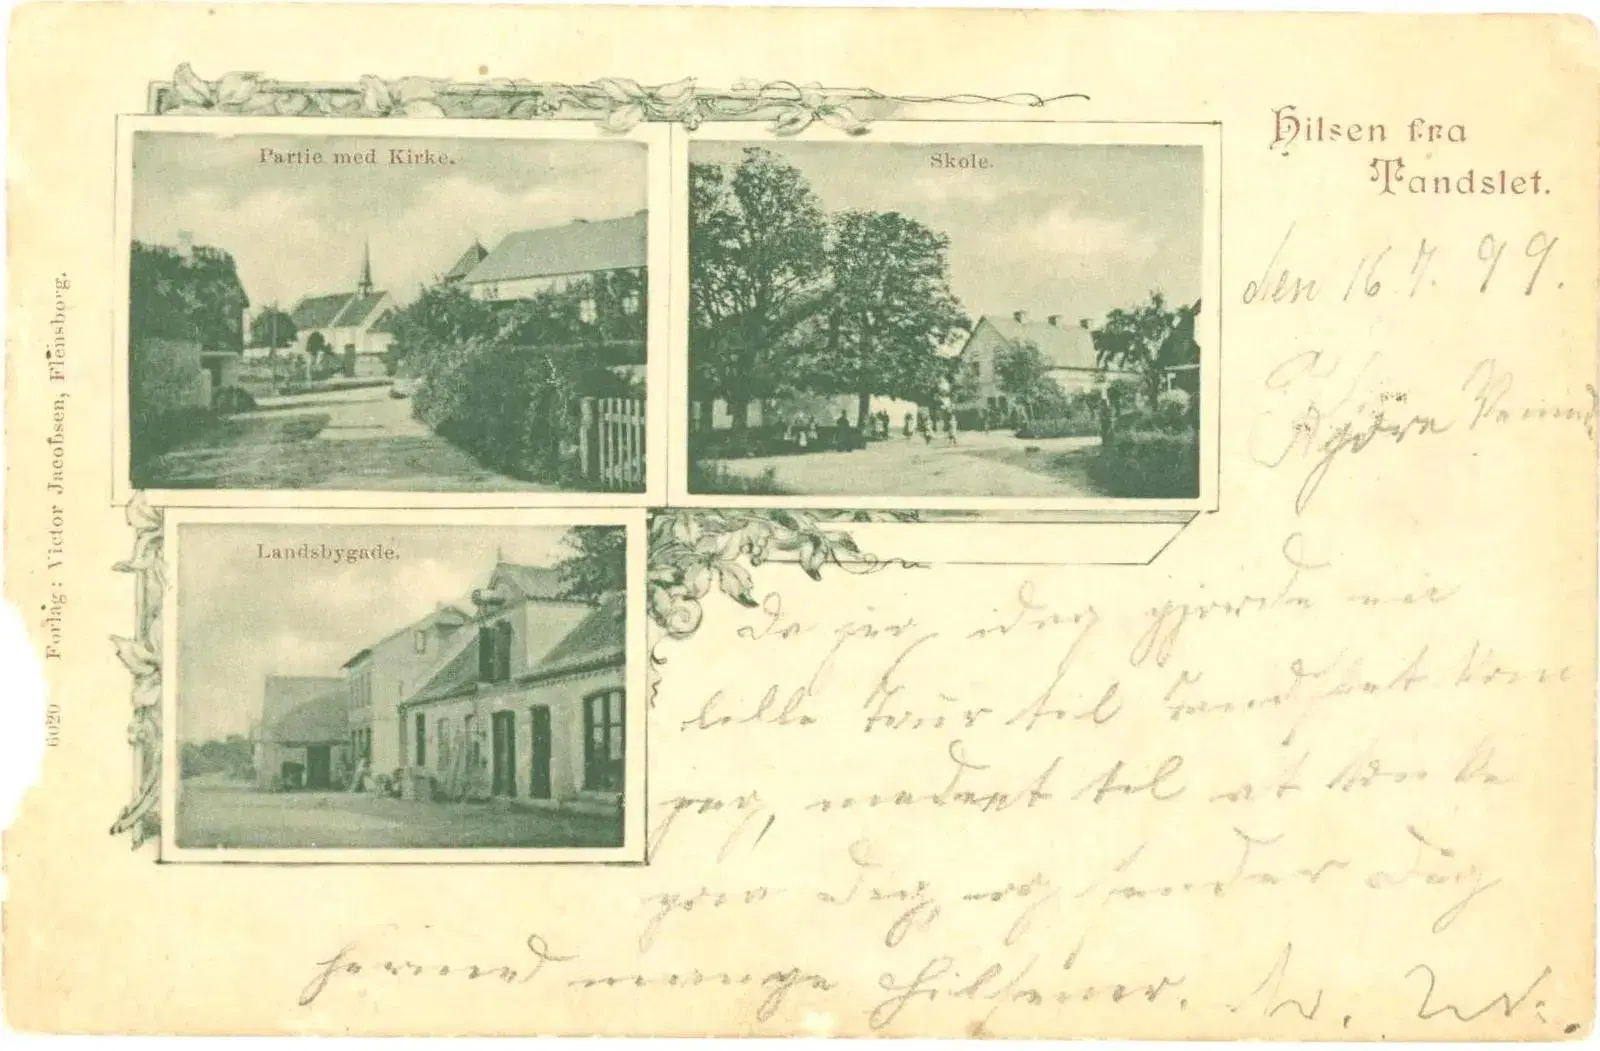 Hilsen fra
Tandslet.
Partie med Kirke.
Skole.
Landsbygade.
6020 Forlag: Victor Jacobsen, Flensborg.
den 16.7.99.
Kjære
Da jeg idag gjorde
lille Tour til Tandslet kom
jeg, til at tænke
paa Dig, og sender Dig
hermed mange Hilsener.